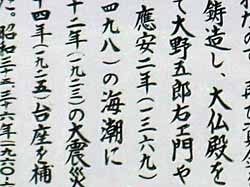 鋳造し、大仏殿を
て大野五郎右ヱ門や
應安二年(一三六九)
四九八)の海潮に
十二年(一九二三)の大震災
十四年(一九二五)台座を補
た。昭和三十五・三十六年(一九六〇・六